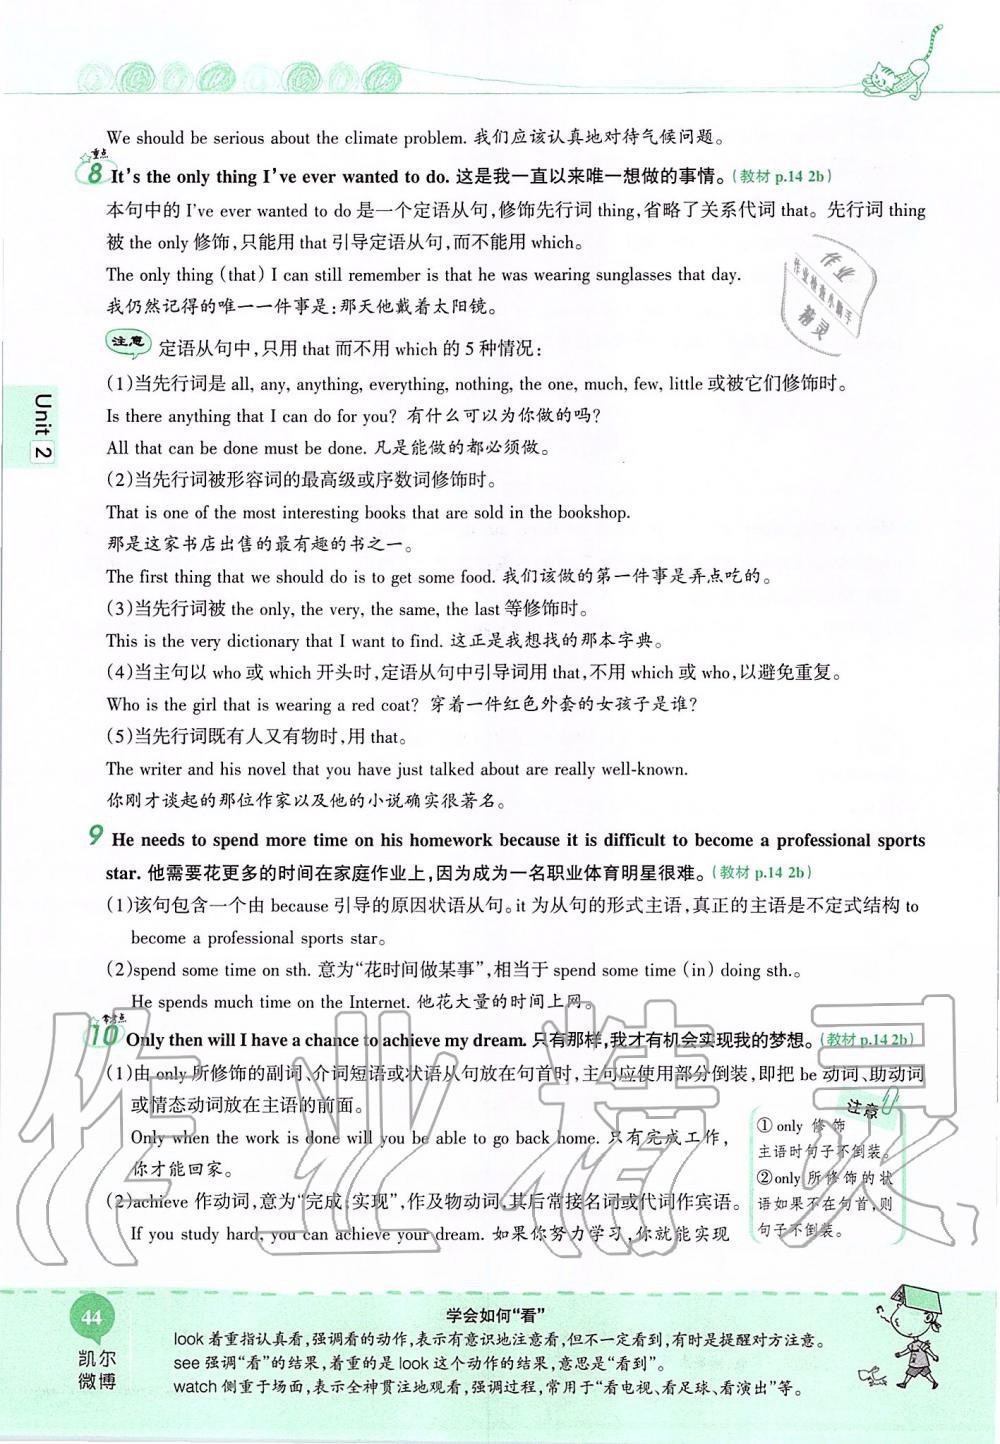 We should be serious about the climate problem. 我们应该认真地对待气候问题。
重点
8 It's the only thing I've ever wanted to do. 这是我一直以来唯一想做的事情。(教材 p.14 2b)
本句中的 I've ever wanted to do 是一个定语从句,修饰先行词 thing,省略了关系代词 that。先行词 thing
被 the only 修饰,只能用 that 引导定语从句,而不能用 which。
The only thing (that) I can still remember is that he was wearing sunglasses that day.
我仍然记得的唯一一件事是:那天他戴着太阳镜。
作业
作业检查小助手
精灵
注意 定语从句中,只用 that 而不用 which 的 5 种情况:
(1)当先行词是 all, any, anything, everything, nothing, the one, much, few, little 或被它们修饰时。
Is there anything that I can do for you? 有什么可以为你做的吗?
All that can be done must be done. 凡是能做的都必须做。
Unit 2
(2)当先行词被形容词的最高级或序数词修饰时。
That is one of the most interesting books that are sold in the bookshop.
那是这家书店出售的最有趣的书之一。
The first thing that we should do is to get some food. 我们该做的第一件事是弄点吃的。
(3)当先行词被 the only, the very, the same, the last 等修饰时。
This is the very dictionary that I want to find. 这正是我想找的那本字典。
(4)当主句以 who 或 which 开头时,定语从句中引导词用 that,不用 which 或 who,以避免重复。
Who is the girl that is wearing a red coat? 穿着一件红色外套的女孩子是谁?
(5)当先行词既有人又有物时,用 that。
The writer and his novel that you have just talked about are really well-known.
你刚才谈起的那位作家以及他的小说确实很著名。
9 He needs to spend more time on his homework because it is difficult to become a professional sports
star. 他需要花更多的时间在家庭作业上,因为成为一名职业体育明星很难。(教材 p.14 2b)
(1)该句包含一个由 because 引导的原因状语从句。it 为从句的形式主语,真正的主语是不定式结构 to
become a professional sports star。
(2)spend some time on sth. 意为“花时间做某事”,相当于 spend some time (in) doing sth.。
He spends much time on the Internet. 他花大量的时间上网。
常考点
10 Only then will I have a chance to achieve my dream. 只有那样,我才有机会实现我的梦想。(教材 p.14 2b)
(1)由 only 所修饰的副词、介词短语或状语从句放在句首时,主句应使用部分倒装,即把 be 动词、助动词
或情态动词放在主语的前面。
Only when the work is done will you be able to go back home. 只有完成工作,
你才能回家。
(2)achieve 作动词,意为“完成;实现”,作及物动词,其后常接名词或代词作宾语。
If you study hard, you can achieve your dream. 如果你努力学习,你就能实现
注意
①only 修饰
主语时句子不倒装。
②only 所修饰的状
语如果不在句首,则
句子不倒装。
作业精灵
44
凯尔
微博
学会如何“看”
look 着重指认真看,强调看的动作,表示有意识地注意看,但不一定看到,有时是提醒对方注意。
see 强调“看”的结果,着重的是 look 这个动作的结果,意思是“看到”。
watch 侧重于场面,表示全神贯注地观看,强调过程,常用于“看电视、看足球、看演出”等。